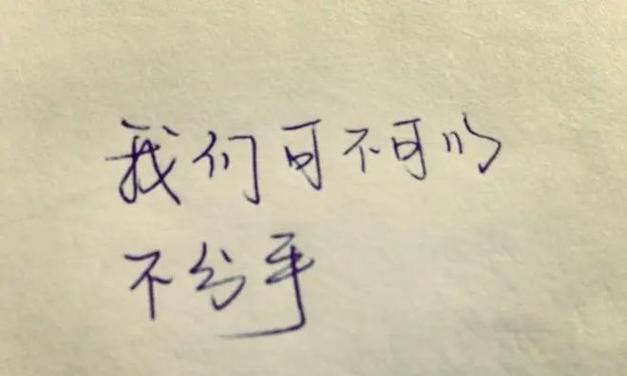 我们可不可以
不分手